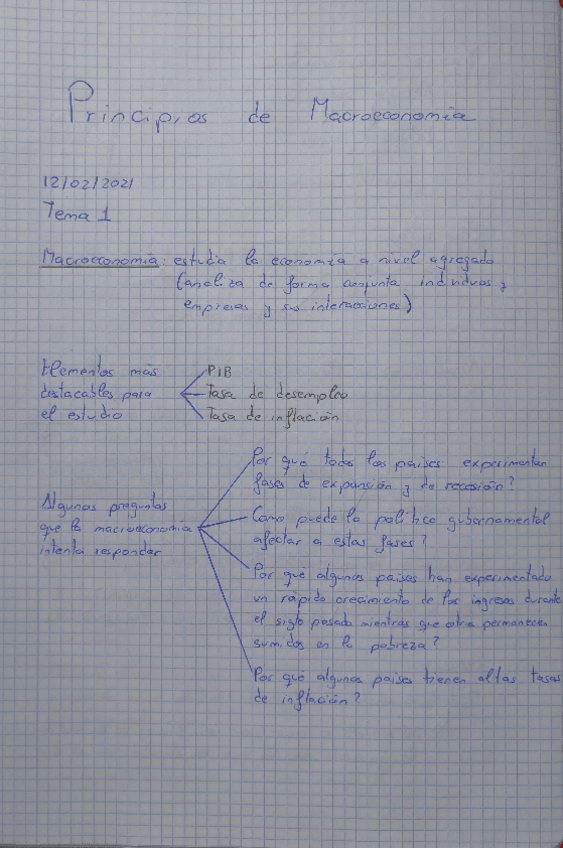 Principios de Macroeconomia
12/02/2021
Tema 1
Macroeconomia: estudia la economia a nivel agregado
(analiza de forma conjunta individuos,
empresas y sus interacciones)
Elementos más
destacables para
el estudio
PIB
Tasa de desempleo
Tasa de inflación
Algunas preguntas
que la macroeconomia
intenta responder
Por qué todos los países experimentan
fases de expansión y de recesión?
Como puede la política gubernamental
afectar a estas fases?
Por qué algunos países han experimentado
un rápido crecimiento de los ingresos durante
el siglo pasado mientras que otros permanecen
sumidos en la pobreza?
Por qué algunos países tienen altas tasas
de inflación?